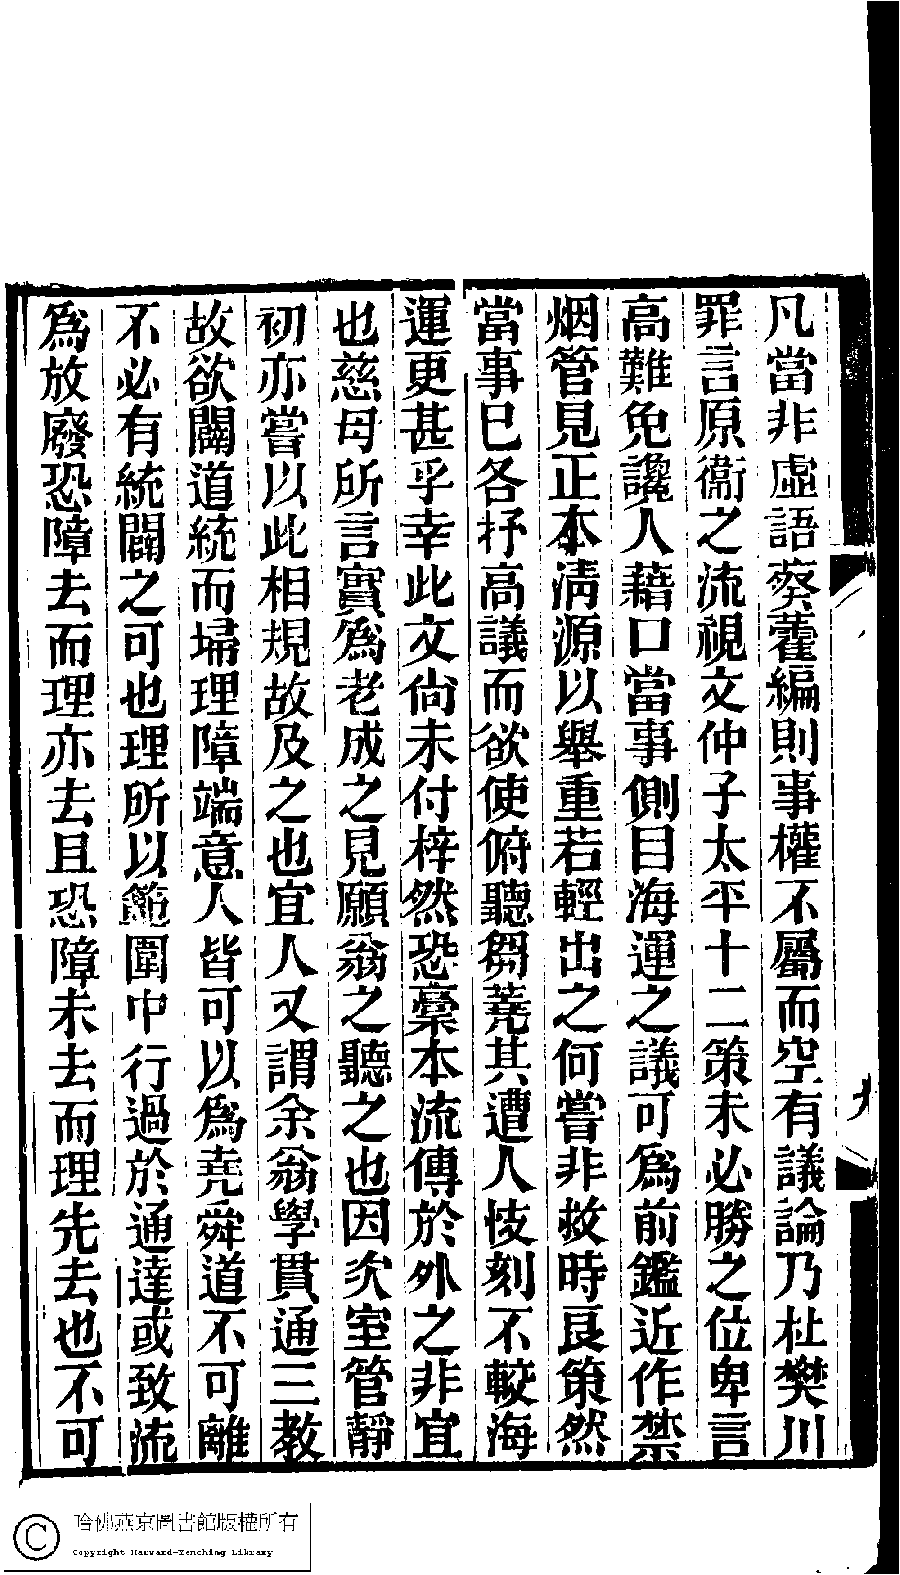 凡當非虛語蔡藿編則事權不屬而空有議論乃杜樊川
罪言原衞之流視文仲子太平十二策未必勝之位卑言
高難免讒人藉口當事側目海運之議可為前鑑近作禁
烟管見正本清源以舉重若輕出之何嘗非救時良策然
當事巳各抒高議而欲使俯聽芻蕘其遭人忮刻不較海
運更甚乎幸此文尙未付梓然恐稾本流傳於外之非宜
也慈母所言實為老成之見願翁之聽之也因次室管靜
初亦嘗以此相規故及之也宜人又謂余翁學貫通三教
故欲闢道統而埽理障端意人皆可以為堯舜道不可離
不必有統闢之可也理所以範圍中行過於通達或致流
為放廢恐障去而理亦去且恐障未去而理先去也不可
九
哈佛燕京圖書館版權所有
Copyright Harvard-Yenching Library